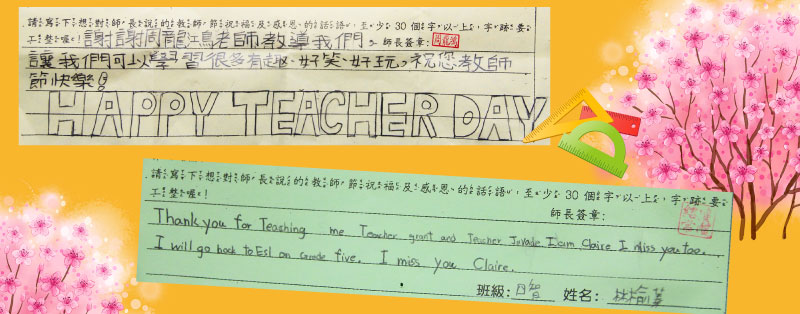 請寫下想對師長說的教師節祝福及感恩的話語,至少30個字以上,字跡要
工整喔!謝謝周龍鴻老師教導我們。師長簽章:
讓我們可以學習很多有趣、好笑、好玩。祝您教師
節快樂!
HAPPY TEACHER DAY
請寫下想對師長說的教師節祝福及感恩的話語,至少30個字以上,字跡要
工整喔!
師長簽章:
Thank you for Teaching me Teacher grant and Teacher Jovade. I am Claire I miss you too.
I will go back to Esl on Grade five. I miss you Claire.
班級: 智 姓名: 林榆